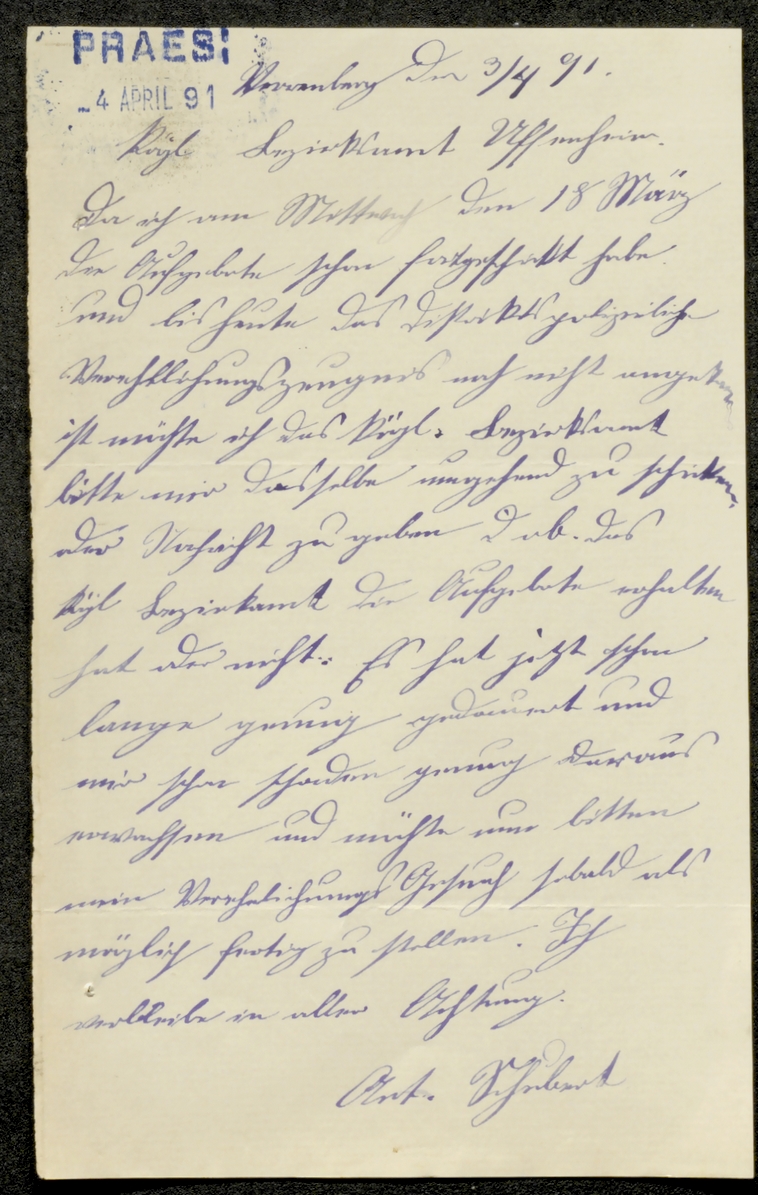 PRAES:
4 APRIL 91
den 3/4 91.
Kögl Bezirksamt Uffenheim.
Da ich am Mittwoch den 18 März
die Aufgebote schon fortgeschickt habe.
und bis heute das distriktspolizeiliche
Verehlichungszeugnis noch nicht angekom
ist möchte ich das Kögl. Bezirksamt
bitte mir dasselbe umgehend zu schicken,
oder Nachricht zu geben ob. das
Kögl Bezirkamt die Aufgebote erhalten
hat oder nicht. Es hat jetzt schon
lange genug gedauert und
mir schon schaden genug daraus
erwachsen und möchte nun bitten
mein Verehelichungs Gesuch sobald als
möglich fertig zu stellen. Ich
verbleibe in aller Achtung.
Ant. Schubert